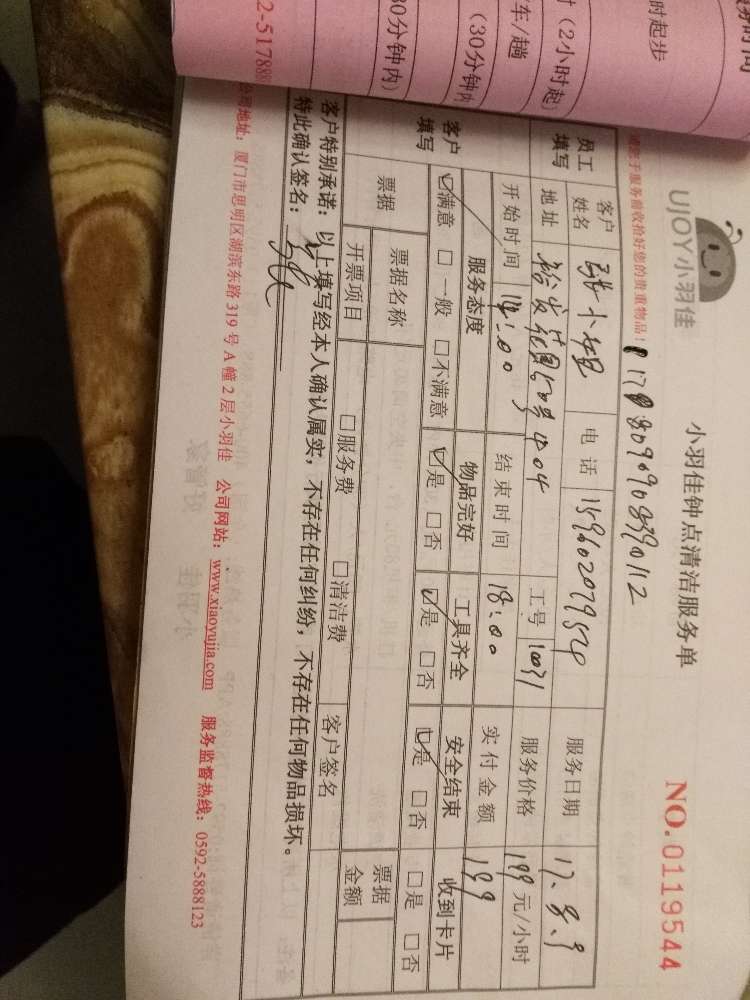 UJOY小羽佳
小羽佳钟点清洁服务单
NO.0119544
于服务前收拾好您的贵重物品！
员工填写
客户姓名 张小姐 电话 服务日期 17.8.9
地址 裕发花园50号404 工号 10031 服务价格 199 元/小时
开始时间 14:00 结束时间 18:00 实付金额 199
客户填写
服务态度 物品完好 工具齐全 安全结束 收到卡片
☑满意 □一般 □不满意 ☑是 □否 ☑是 □否 ☑是 □否 □是 □否
票据 票据名称 票据金额
开票项目 □服务费 □清洁费 客户签名
客户特别承诺：以上填写经本人确认属实，不存在任何纠纷，不存在任何物品损坏。
特此确认签名：
公司地址：厦门市思明区湖滨东路319号A幢2层小羽佳 公司网站：www.xiaoyujia.com 服务监督热线：0592-5888123
时间
时起步
时(2小时起)
车/趟
(30分钟内
30分钟内)
2-5178